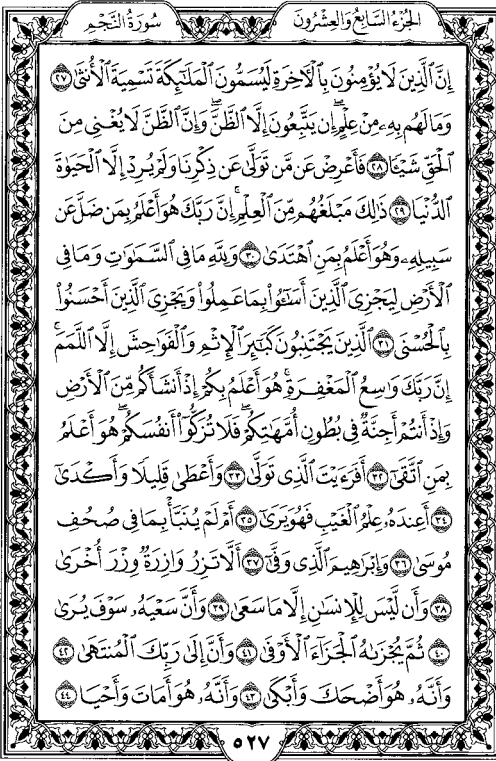 الجزء السابع والعشرون
سورة النجم
إِنَّ ٱلَّذِينَ لَا يُؤْمِنُونَ بِٱلْءَاخِرَةِ لَيُسَمُّونَ ٱلْمَلَٰٓئِكَةَ تَسْمِيَةَ ٱلْأُنثَىٰ ٢٧
وَمَا لَهُم بِهِۦ مِنْ عِلْمٍ ۖ إِن يَتَّبِعُونَ إِلَّا ٱلظَّنَّ ۖ وَإِنَّ ٱلظَّنَّ لَا يُغْنِى مِنَ
ٱلْحَقِّ شَيْـًٔا ٢٨ فَأَعْرِضْ عَن مَّن تَوَلَّىٰ عَن ذِكْرِنَا وَلَمْ يُرِدْ إِلَّا ٱلْحَيَوٰةَ
ٱلدُّنْيَا ٢٩ ذَٰلِكَ مَبْلَغُهُم مِّنَ ٱلْعِلْمِ ۚ إِنَّ رَبَّكَ هُوَ أَعْلَمُ بِمَن ضَلَّ عَن
سَبِيلِهِۦ وَهُوَ أَعْلَمُ بِمَنِ ٱهْتَدَىٰ ٣٠ وَلِلَّهِ مَا فِى ٱلسَّمَٰوَٰتِ وَمَا فِى
ٱلْأَرْضِ لِيَجْزِىَ ٱلَّذِينَ أَسَٰٓـُٔوا۟ بِمَا عَمِلُوا۟ وَيَجْزِىَ ٱلَّذِينَ أَحْسَنُوا۟
بِٱلْحُسْنَى ٣١ ٱلَّذِينَ يَجْتَنِبُونَ كَبَٰٓئِرَ ٱلْإِثْمِ وَٱلْفَوَٰحِشَ إِلَّا ٱللَّمَمَ ۚ
إِنَّ رَبَّكَ وَٰسِعُ ٱلْمَغْفِرَةِ ۚ هُوَ أَعْلَمُ بِكُمْ إِذْ أَنشَأَكُم مِّنَ ٱلْأَرْضِ
وَإِذْ أَنتُمْ أَجِنَّةٌ فِى بُطُونِ أُمَّهَٰتِكُمْ ۖ فَلَا تُزَكُّوٓا۟ أَنفُسَكُمْ ۖ هُوَ أَعْلَمُ
بِمَنِ ٱتَّقَىٰٓ ٣٢ أَفَرَءَيْتَ ٱلَّذِى تَوَلَّىٰ ٣٣ وَأَعْطَىٰ قَلِيلًا وَأَكْدَىٰٓ
٣٤ أَعِندَهُۥ عِلْمُ ٱلْغَيْبِ فَهُوَ يَرَىٰٓ ٣٥ أَمْ لَمْ يُنَبَّأْ بِمَا فِى صُحُفِ
مُوسَىٰ ٣٦ وَإِبْرَٰهِيمَ ٱلَّذِى وَفَّىٰٓ ٣٧ أَلَّا تَزِرُ وَازِرَةٌ وِزْرَ أُخْرَىٰ
٣٨ وَأَن لَّيْسَ لِلْإِنسَٰنِ إِلَّا مَا سَعَىٰ ٣٩ وَأَنَّ سَعْيَهُۥ سَوْفَ يُرَىٰ
٤٠ ثُمَّ يُجْزَىٰهُ ٱلْجَزَآءَ ٱلْأَوْفَىٰ ٤١ وَأَنَّ إِلَىٰ رَبِّكَ ٱلْمُنتَهَىٰ ٤٢
وَأَنَّهُۥ هُوَ أَضْحَكَ وَأَبْكَىٰ ٤٣ وَأَنَّهُۥ هُوَ أَمَاتَ وَأَحْيَا ٤٤
٥٢٧